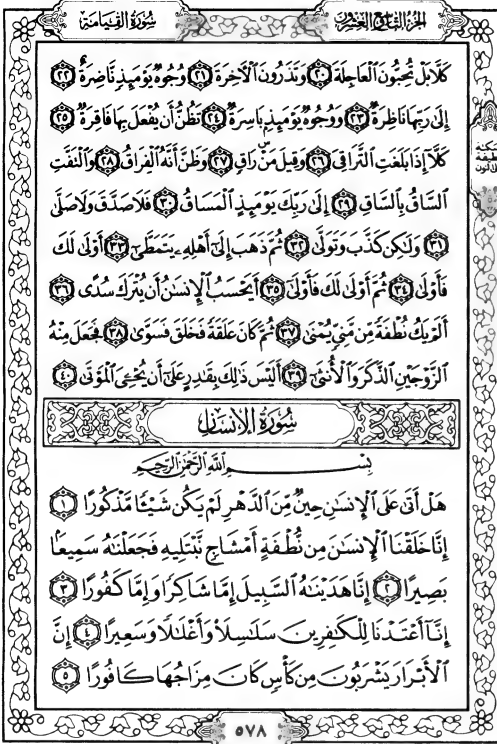 سُورَةُ القِيَامَةِ
الجُزءُ التَّاسِعُ وَالعِشرُونَ
كَلَّا بَلْ تُحِبُّونَ ٱلْعَاجِلَةَ ٢٠ وَتَذَرُونَ ٱلْأَخِرَةَ ٢١ وُجُوهٌ يَوْمَئِذٍ نَّاضِرَةٌ ٢٢
إِلَىٰ رَبِّهَا نَاظِرَةٌ ٢٣ وَوُجُوهٌ يَوْمَئِذٍۭ بَاسِرَةٌ ٢٤ تَظُنُّ أَن يُفْعَلَ بِهَا فَاقِرَةٌ ٢٥
كَلَّآ إِذَا بَلَغَتِ ٱلتَّرَاقِيَ ٢٦ وَقِيلَ مَنْ رَاقٍ ٢٧ وَظَنَّ أَنَّهُ ٱلْفِرَاقُ ٢٨ وَٱلْتَفَّتِ
ٱلسَّاقُ بِٱلسَّاقِ ٢٩ إِلَىٰ رَبِّكَ يَوْمَئِذٍ ٱلْمَسَاقُ ٣٠ فَلَا صَدَّقَ وَلَا صَلَّىٰ
٣١ وَلَٰكِن كَذَّبَ وَتَوَلَّىٰ ٣٢ ثُمَّ ذَهَبَ إِلَىٰٓ أَهْلِهِۦ يَتَمَطَّىٰٓ ٣٣ أَوْلَىٰ لَكَ
فَأَوْلَىٰ ٣٤ ثُمَّ أَوْلَىٰ لَكَ فَأَوْلَىٰٓ ٣٥ أَيَحْسَبُ ٱلْإِنسَٰنُ أَن يُتْرَكَ سُدًى ٣٦
أَلَمْ يَكُ نُطْفَةً مِّن مَّنِيٍّ يُمْنَىٰ ٣٧ ثُمَّ كَانَ عَلَقَةً فَخَلَقَ فَسَوَّىٰ ٣٨ فَجَعَلَ مِنْهُ
ٱلزَّوْجَيْنِ ٱلذَّكَرَ وَٱلْأُنثَىٰٓ ٣٩ أَلَيْسَ ذَٰلِكَ بِقَٰدِرٍ عَلَىٰٓ أَن يُحْـِۧيَ ٱلْمَوْتَىٰ ٤٠
سُورَةُ الإِنسَانِ
بِسْمِ ٱللَّهِ ٱلرَّحْمَٰنِ ٱلرَّحِيمِ
هَلْ أَتَىٰ عَلَى ٱلْإِنسَٰنِ حِينٌ مِّنَ ٱلدَّهْرِ لَمْ يَكُن شَيْـًٔا مَّذْكُورًا ١
إِنَّا خَلَقْنَا ٱلْإِنسَٰنَ مِن نُّطْفَةٍ أَمْشَاجٍ نَّبْتَلِيهِ فَجَعَلْنَٰهُ سَمِيعًۢا
بَصِيرًا ٢ إِنَّا هَدَيْنَٰهُ ٱلسَّبِيلَ إِمَّا شَاكِرًا وَإِمَّا كَفُورًا ٣
إِنَّآ أَعْتَدْنَا لِلْكَٰفِرِينَ سَلَٰسِلَا۟ وَأَغْلَٰلًا وَسَعِيرًا ٤ إِنَّ
ٱلْأَبْرَارَ يَشْرَبُونَ مِن كَأْسٍ كَانَ مِزَاجُهَا كَافُورًا ٥
٥٧٨